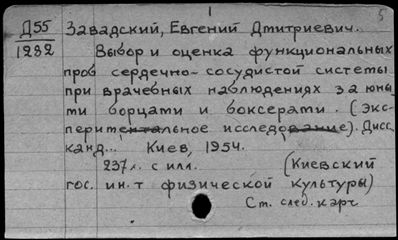 5
Д55 Завадский, Евгений Дмитриевич.
1232 Выбор и оценка функциональных
проб сердечно-сосудистой системы
при врачебных наблюдениях за юны-
ми борцами и боксерами. (Экс-
периментальное исследование). Дисс.
канд... Киев, 1954.
237л. с илл. (Киевский
гос. ин-т физической культуры)
Ст. след. карт